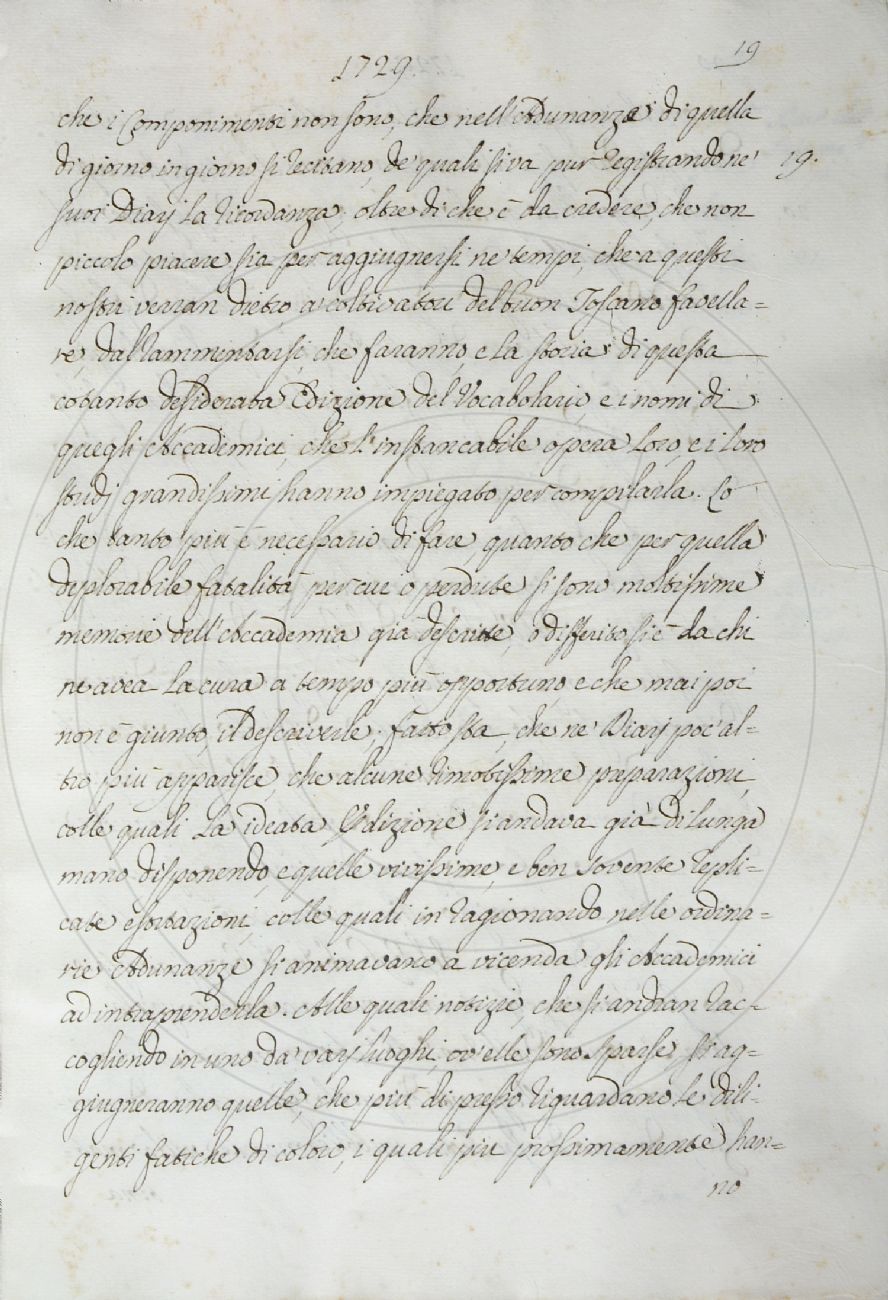 19
1729.
che i Componimenti non sono, che nell'Adunanze di quella
di giorno in giorno si recitano, de' quali si va pur registrando ne'
19.
suoi Diarj la ricordanza; oltre di che è da credere, che non
piccolo piacere sia per aggiugnersi ne' tempi, che a questi
nostri verran dietro a' coltivatori del buon Toscano favella=
re, dal rammentarsi, che faranno, e la storia di questa
cotanto desiderata Edizione del Vocabolario, e i nomi di
quegli Accademici, che l'instancabile opera loro, e i loro
studj grandissimi hanno impiegato per compilarla. Lo
che tanto più è necessario di fare, quanto che per quella
deplorabile fatalità per cui o perdute si sono moltissime
memorie dell'Accademia già descritte, o differito si è da chi
ne avea la cura a tempo più opportuno, e che mai poi
non è giunto, il descriverle; fatto sta, che ne' Diarj poc'al=
tro più apparisce, che alcune rimotissime preparazioni,
colle quali la ideata Edizione si andava già di lunga
mano disponendo, e quelle vivissime, e ben sovente repli=
cate esortazioni, colle quali in ragionando nelle ordina=
rie Adunanze si animavano a vicenda gli Accademici
ad intraprenderla. Alle quali notizie, che si andran rac=
cogliendo in uno da' varj luoghi, ov'elle sono sparse, si ag=
giugneranno quelle, che più di presso riguardano le dili=
genti fatiche di coloro, i quali più prossimamente han=
no